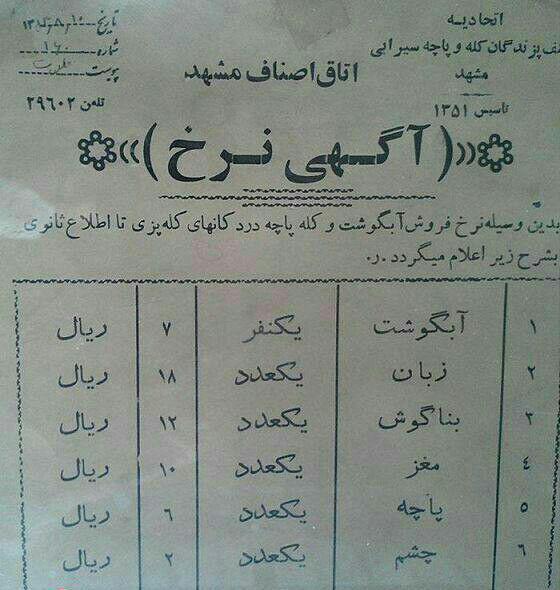 اتحادیه
صنف پزندگان کله و پاچه سیرابی
مشهد
تاسیس ۱۳۵۱
اتاق اصناف مشهد
تاریخ
شماره ۱۶۰
پیوست
تلفن ۲۹۶۰۲
«(آگهی نرخ)»
بدین وسیله نرخ فروش آبگوشت و کله پاچه در دکانهای کله پزی تا اطلاع ثانوی
بشرح زیر اعلام میگردد .ر.
۱ آبگوشت یکنفر ۷ ریال
۲ زبان یکعدد ۱۸ ریال
۳ بناگوش یکعدد ۱۲ ریال
۴ مغز یکعدد ۱۰ ریال
۵ پاچه یکعدد ۶ ریال
۶ چشم یکعدد ۲ ریال